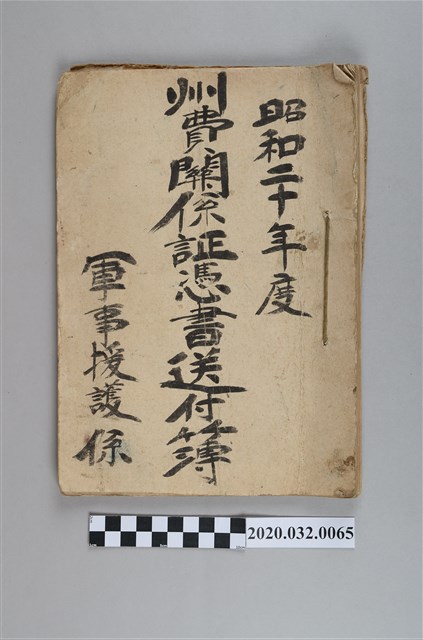 昭和二十年度
州費関係証憑書送付簿
軍事援護係
2020.032.0065